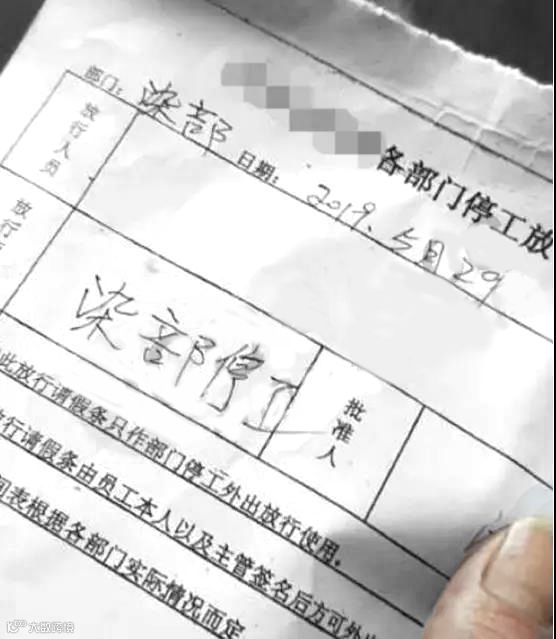 各部门停工放
部门：染部 日期：2019.5月29
放行人员
放行
染部停工
批准人
此放行请假条只作部门停工外出放行使用。
放行请假条由员工本人以及主管签名后方可外
间表根据各部门实际情况而定
大数跨境